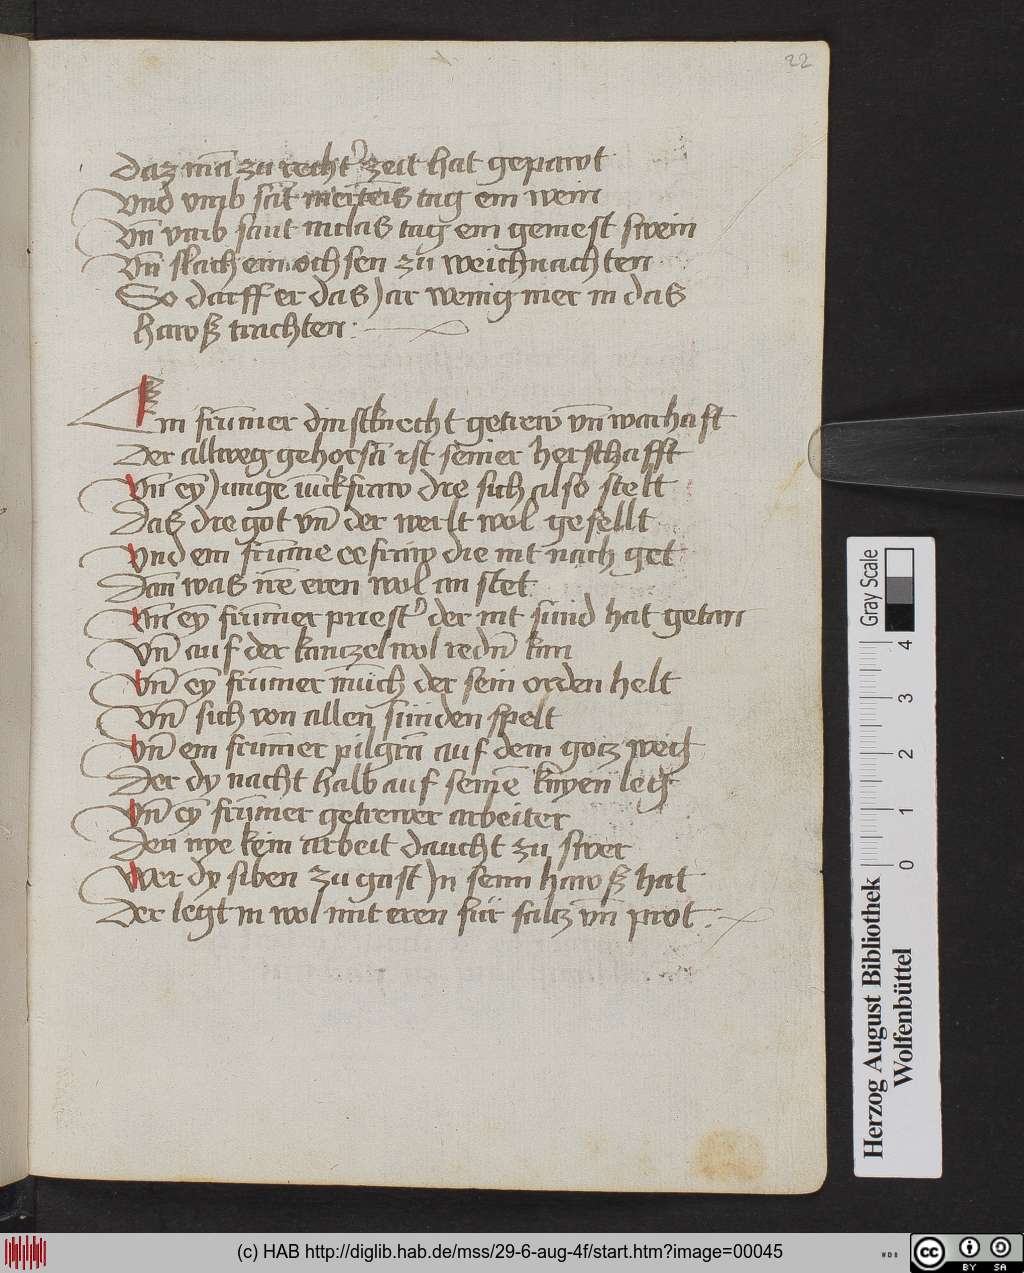 22
Daz mā zu recht' zeit hat gepawt
Vnd vmb sāt merteis tag ein wein
Vn̄ vmb sant niclas tag ein gemest swein
Vn̄ slach ein ochsen zu weichnachten
So darff er daß Jar wenig mer in daß
hawß trachten :
Ein frūmer dinstknecht getrew vn̄ warhaft
Der allweg gehorsā ist seiner herschafft
Vn̄ eȳ Junge iūckfraw die sich also stelt
Daß die got vn̄ der werlt wol gefellt
Vnd ein frūme eefraw die nit nach get
Dan̄ waß ire eren wol an stet
Vn̄ eȳ frūmer priest' der nit sund hat getan
Vn̄ auf der kantzel wol redn̄ kan
Vn̄ eȳ frūmer mūch der sein orden helt
Vn̄ sich von allen sunden spelt
Vn̄ ein frūmer pilgrā auf dem gotz weg
Der dy nacht halb auf seinē knyen leg
Vn̄ eȳ frūmer getrewer arbeiter
Den nye kein arbeit daucht zu swer
Wer dy siben zu gast Jn seim hawß hat
Der legt in wol mit eren für saltz vn̄ prot .
Herzog August Bibliothek
Wolfenbüttel
0 1 2 3 4
Gray Scale
(c) HAB http://diglib.hab.de/mss/29-6-aug-4f/start.htm?image=00045
WDB
cc BY SA